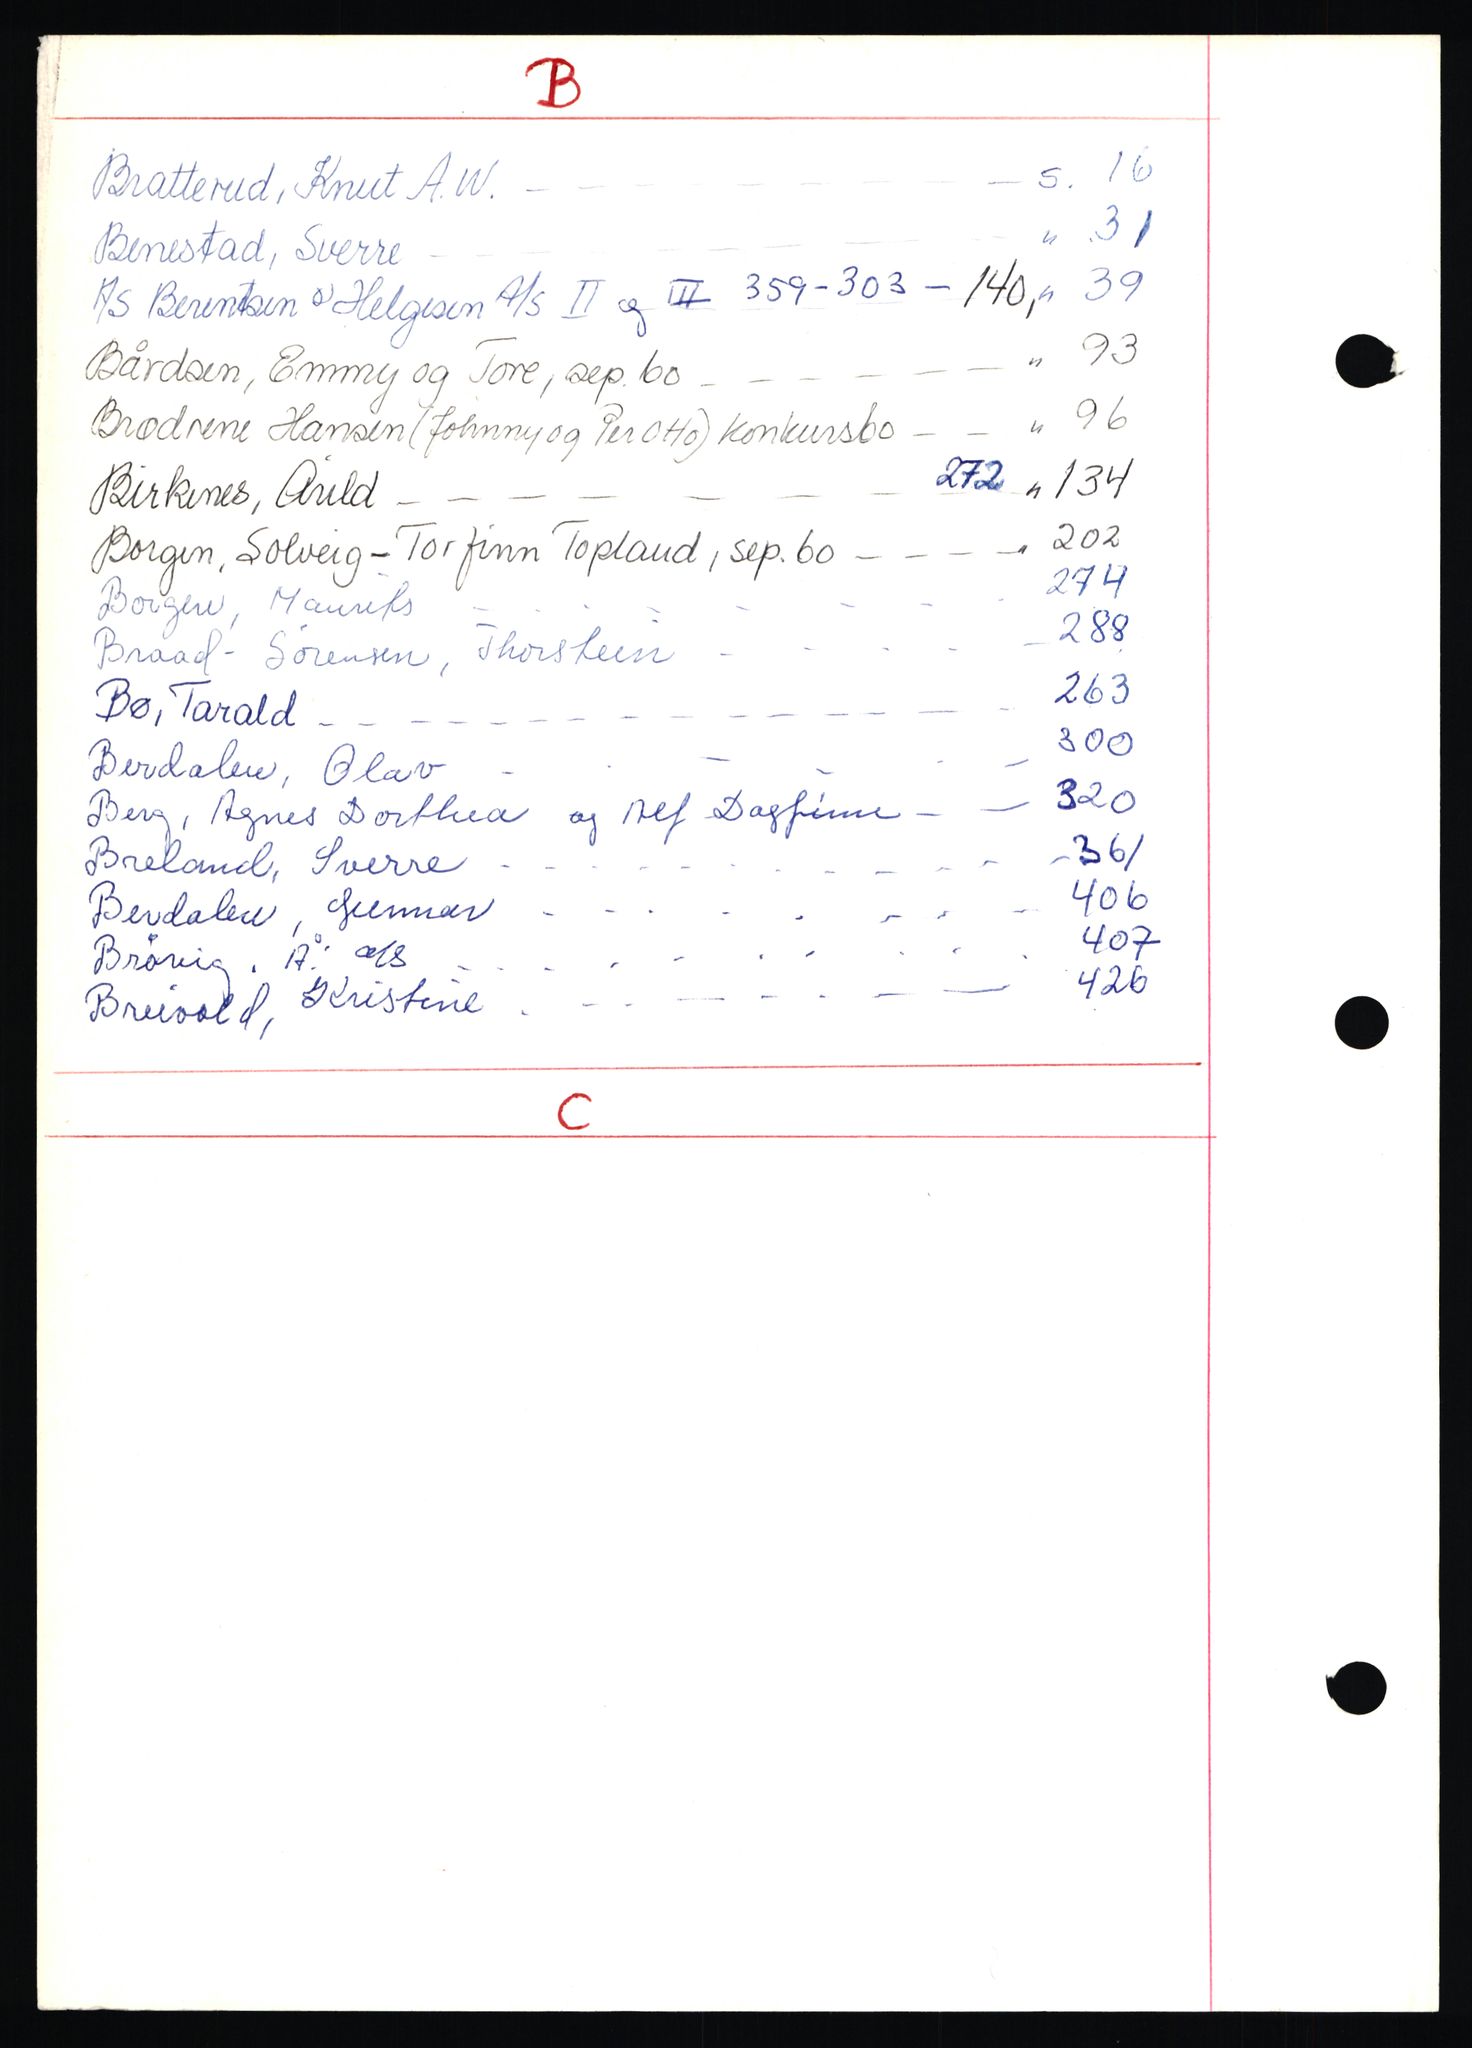 B
Bratterud, Knut A.W. — — — — — — — — s. 16
Benestad, Sverre — — — — — — — — — " 31
A/S Berentsen & Helgesen A/S II og III 359-303 - 140, " 39
Bårdsen, Emmy og Tore, sep. bo — — — — — — — " 93
Brødrene Hansen (Johnny og Per Otto) konkursbo — — " 96
Birkenes, Arild — — — — — — — 272 " 134
Borgen, Solveig - Torfinn Topland, sep. bo — — — — " 202
Borgen, Mauriks - - - - - - - 274
Braad-Sörensen, Thorstein - - - - - 288
Bø, Tarald - - - - - - - - - - - - 263
Berdalen, Olav - - - - - - 300
Berg, Agnes Dorthea og Alf Dagfinn — — 320
Breland, Sverre - - - - - - - - - - 361
Berdalen, Gunnar - - - - - - - - 406
Brövig, Å. a/s - - - - - - - - - 407
Breivold, Kristine - - - - - - — 426
C